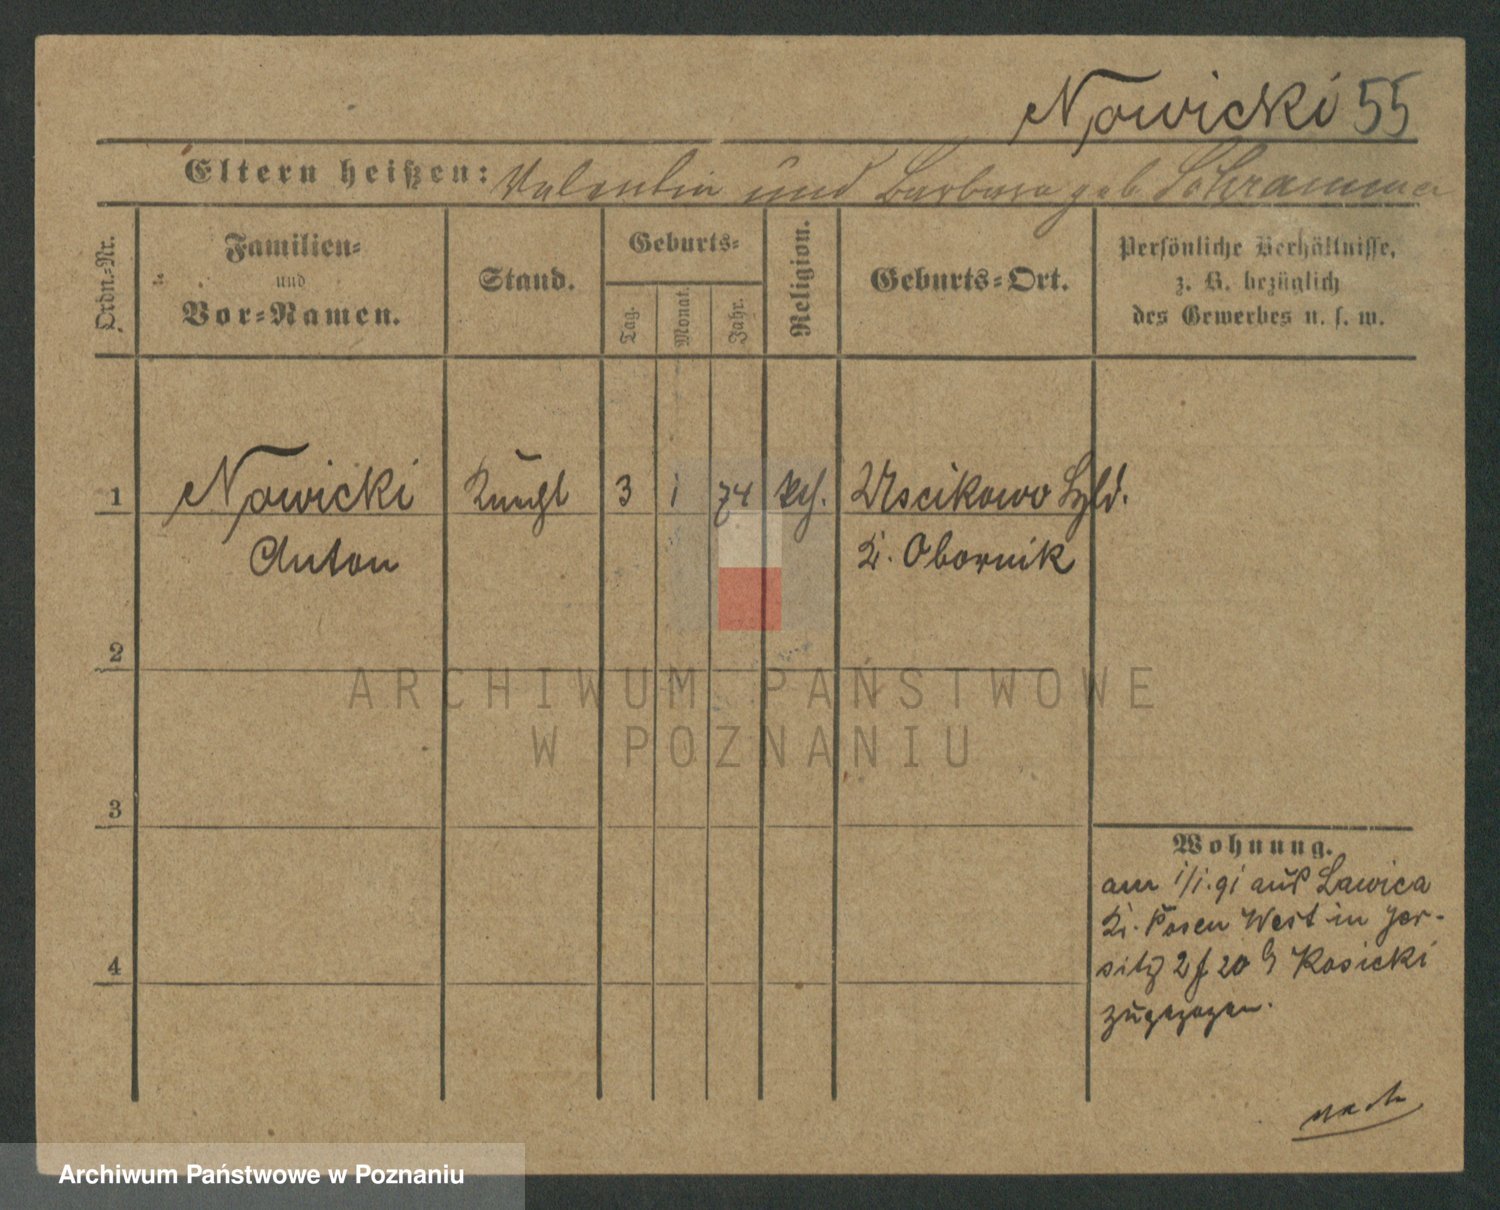 Nowicki 55
Eltern heißen: Valentin und Barbara geb Schramma
Ordn.-Nr.
Familien-
und
Vor-Namen.
Stand.
Geburts-
Tag.
Monat.
Jahr.
Religion.
Geburts-Ort.
Persönliche Verhältnisse,
z. B. bezüglich
des Gewerbes u. s. w.
1 Nowicki Knecht 3 1 74 kth. Uscikowo
Anton Kr. Obornik
2
3
4
Wohnung.
am 1/1.91 aus Lawica
Kr. Posen West in Jer-
sitz 20 Kosicki
zugezogen.
nach
ARCHIWUM PAŃSTWOWE
W POZNANIU
Archiwum Państwowe w Poznaniu